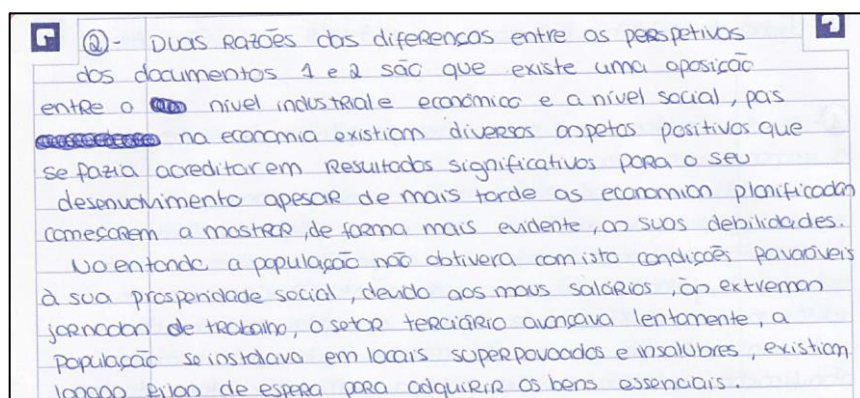 ②- Duas Razões das diferenças entre as perspetivas
dos documentos 1 e 2 são que existe uma oposição
entre o nível industrial e económico e a nível social, pois
na economia existiam diversos aspetos positivos que
se fazia acreditar em Resultados significativos para o seu
desenvolvimento apesar de mais tarde as economias planificadas
começarem a mostrar, de forma mais evidente, as suas debilidades.
No entando a população não obtivera com isto condições favoráveis
à sua prosperidade social, devido aos maus salários, às extremas
jornadas de trabalho, o setor terciário avançava lentamente, a
população se instalava em locais superpovoados e insalubres, existiam
longas filas de espera para adquirir os bens essenciais.